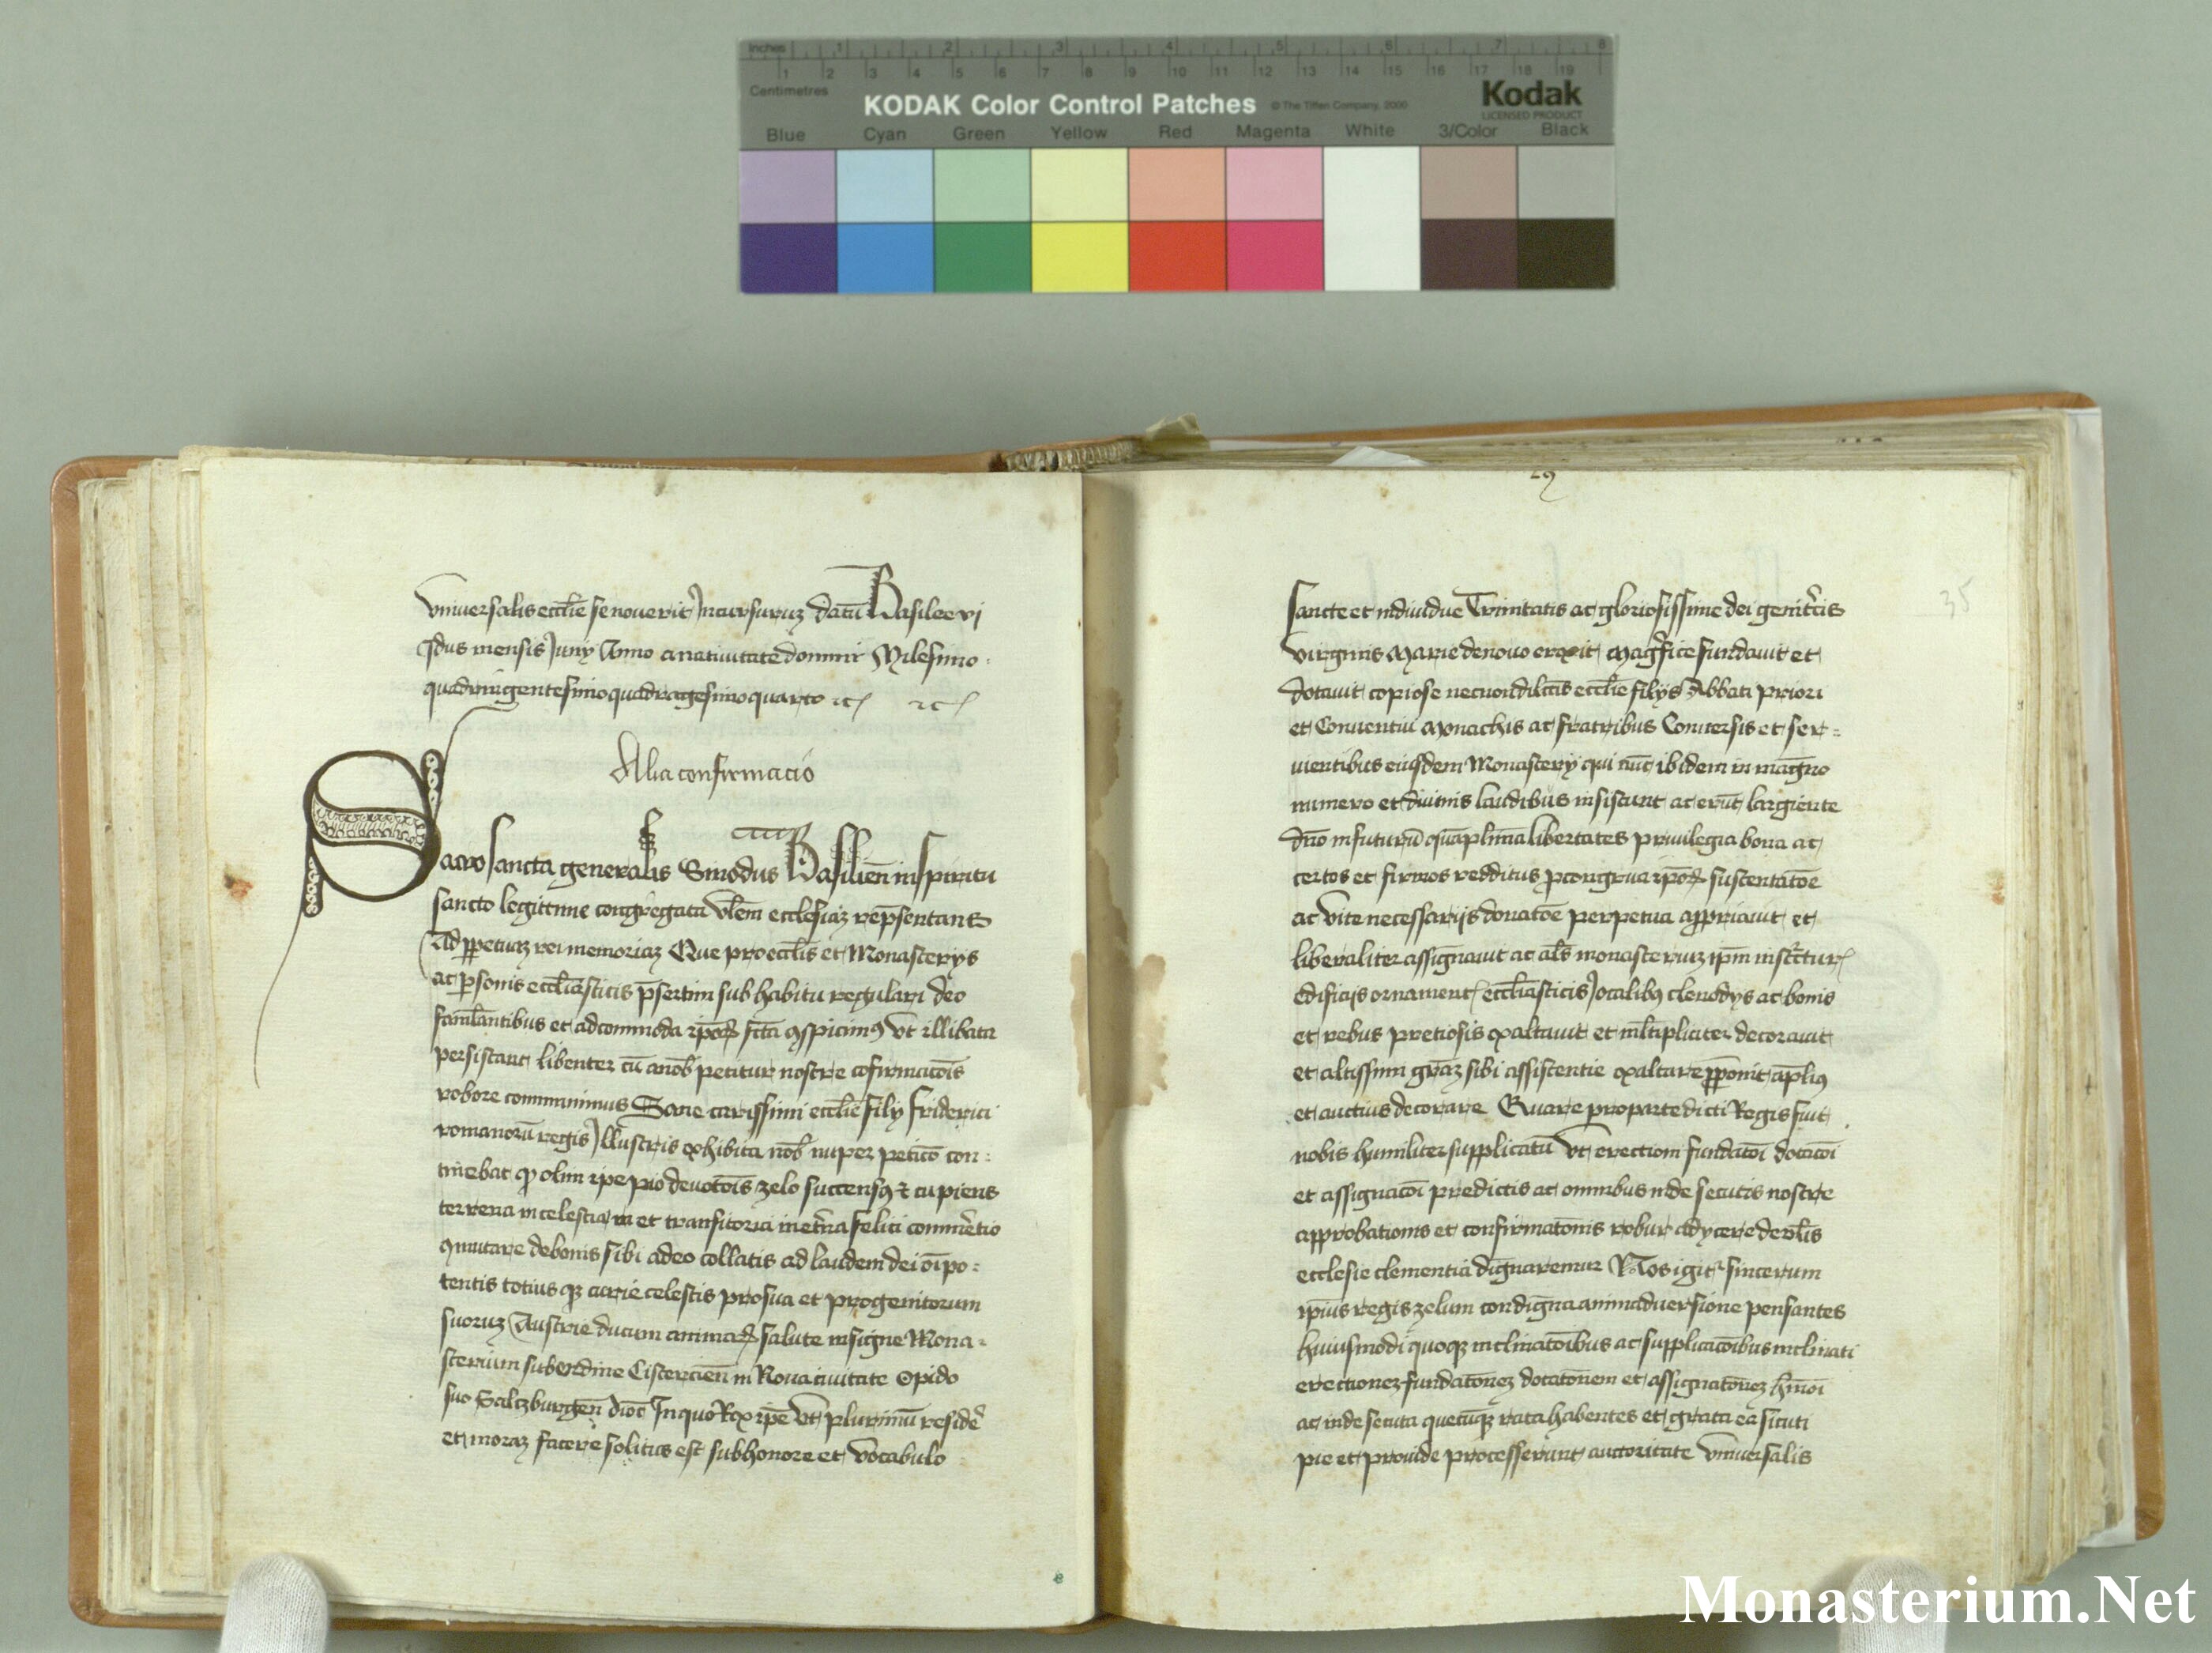 Inches 1 2 3 4 5 6 7 8
1 2 3 4 5 6 7 8 9 10 11 12 13 14 15 16 17 18 19
Centimetres
KODAK Color Control Patches © The Tiffen Company, 2000 Kodak
LICENSED PRODUCT
Blue Cyan Green Yellow Red Magenta White 3/Color Black
vniuersalis eccl̄ie se nouerit Incursuruꝫ datū Basilee vi
Idus mensis Juny Anno a natiuitate domini Milesimo
quadringentesimo quadragesimo quarto ꝛc ꝛc
Alia confirmacio
Sacrosancta generalis Sinodus Basilien̄ in spiritu
sancto legittime congregata vl̄em ecclesiaꝫ rep̄sentans
Ad ꝑpetuaꝫ rei memoriaꝫ Que pro eccl̄is et Monasterys
ac ꝑsonis eccl̄iasticis p̄sertim sub habitu regulari deo
faml̄antibus et ad commoda ip̄oꝝ fc̄ta ꝯspicimꝰ vt illibata
persistant libenter cū a nob̄ petitur nostre cōfirmatōis
robore communimus Sane carissimi eccl̄ie fily friderici
romanorū regis Illustris exhibita nob̄ nuper peticō con=
tinebat ꝙ olim ip̄e pio deuotōis zelo succensꝰ ⁊ cupiens
terrena in celestia et transitoria in et̄na felici commērtio
ꝯmutare de bonis sibi a deo collatis ad laudem dei oīpo=
tentis totiusqꝫ curie celestis pro sua et progenitorum
suoruꝫ Austrie ducum animaꝝ salute insigne Mona=
sterium sub ordine Cistercien̄ in Noua ciuitate Opido
suo Saltzburgen̄ dioc̄ In quo Rex ip̄e vt plurimū residē
et moraꝫ facere solitus est sub honore et vocabulo
35
sancte et indiuidue Trinitatis ac gloriosissime dei genit̄cis
virginis Marie denouo erexit maḡfice fundauit et
dotauit copiose necnon dil̄ctis eccl̄ie filys Abbati priori
et Conuentui monachis ac fratribus Conuersis et ser=
uientibus eiusdem Monastery qui nūc ibidem in magno
numero et diuinis laudibus insistunt ac erūt largiente
dn̄o in futurū quāplīma libertates priuilegia bona ac
certos et firmos redditus ꝓ congrua ip̄oꝝ sustentatōe
ac vite necessarijs donatōe perpetua appriauit et
liberaliter assignauit ac al̄s monasteriuꝫ ip̄m in strc̄tur
edificijs ornament eccl̄iasticis Iocalibꝰ clenodys ac bonis
et rebus pretiosis exaltauit et ml̄tipliciter decorauit
et altissimi grāꝫ sibi assistentie exaltare ꝓponit āpliꝰ
et auctius decorare Quare pro parte dicti Regis fuit
nobis humiliter supplicatū vt erectioni fundatōi dotacōi
et assignacōi predictis ac omnibus inde secutis nostre
approbationis et confirmatōnis robur adycere de vl̄is
ecclesie clementia dignaremur Nos igitr̄ sincerum
ip̄ius regis zelum condigna animaduersione pensantes
huiusmodi quoqꝫ inclinatōibus ac supplicacōibus inclinati
erectionez fundatōneꝫ dotatōnem et assignatōneꝫ hm̄oi
ac inde secuta quecūqꝫ rata habentes et grata ea sicuti
pie et prouide processerunt auctoritate vniuersalis
Monasterium.Net